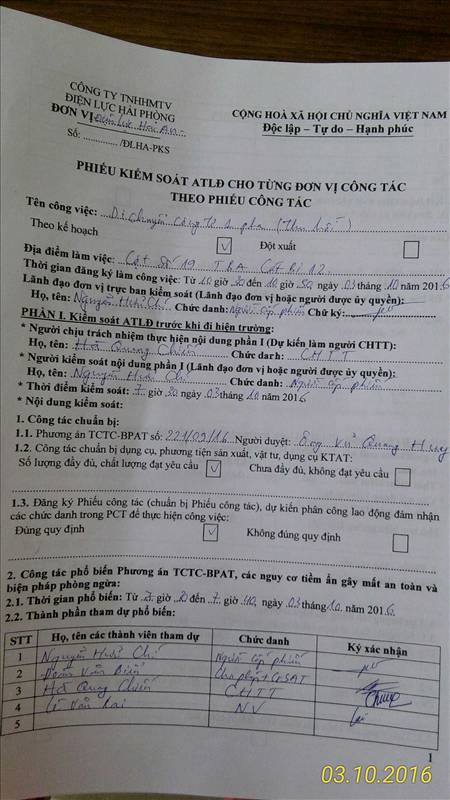 CÔNG TY TNHHMTV
ĐIỆN LỰC HẢI PHÒNG
ĐƠN VỊ Điện lực Hải An
Số: ............. /ĐLHA-PKS
CỘNG HOÀ XÃ HỘI CHỦ NGHĨA VIỆT NAM
Độc lập – Tự do – Hạnh phúc
PHIẾU KIỂM SOÁT ATLĐ CHO TỪNG ĐƠN VỊ CÔNG TÁC
THEO PHIẾU CÔNG TÁC
Tên công việc: Di chuyển công tơ 1 pha (thu hồi)
Theo kế hoạch ☑ Đột xuất ☐
Địa điểm làm việc: Cột số 19 TBA Cát Bi 12
Thời gian đăng ký làm công việc: Từ 10 giờ 20 đến 10 giờ 50 ngày 03 tháng 10 năm 2016
Lãnh đạo đơn vị trực ban kiểm soát (Lãnh đạo đơn vị hoặc người được ủy quyền):
Họ, tên: Nguyễn Hữu Chí Chức danh: Người cấp phiếu Chữ ký:
PHẦN I. Kiểm soát ATLĐ trước khi đi hiện trường:
* Người chịu trách nhiệm thực hiện nội dung phần I (Dự kiến làm người CHTT):
Họ, tên: Hà Quang Chiến Chức danh: CHTT
* Người kiểm soát nội dung phần I (Lãnh đạo đơn vị hoặc người được ủy quyền):
Họ, tên: Nguyễn Hữu Chí Chức danh: Người cấp phiếu
* Thời điểm kiểm soát: 7 giờ 30 ngày 03 tháng 10 năm 2016
* Nội dung kiểm soát:
1. Công tác chuẩn bị:
1.1. Phương án TCTC-BPAT số: 221/09/16 Người duyệt: Ông Vũ Quang Hưng
1.2. Công tác chuẩn bị dụng cụ, phương tiện sản xuất, vật tư, dụng cụ KTAT:
Số lượng đầy đủ, chất lượng đạt yêu cầu ☑ Chưa đầy đủ, không đạt yêu cầu ☐
1.3. Đăng ký Phiếu công tác (chuẩn bị Phiếu công tác), dự kiến phân công lao động đảm nhận
các chức danh trong PCT để thực hiện công việc:
Đúng quy định ☑ Không đúng quy định ☐
2. Công tác phổ biến Phương án TCTC-BPAT, các nguy cơ tiềm ẩn gây mất an toàn và
biện pháp phòng ngừa:
2.1. Thời gian phổ biến: Từ 7 giờ đến 7 giờ 40, ngày 03 tháng 10 năm 2016
2.2. Thành phần tham dự phổ biến:
STT Họ, tên các thành viên tham dự Chức danh Ký xác nhận
1 Nguyễn Hữu Chí Người cấp phiếu
2 Văn Biển
3 Hà Quang Chiến CHTT
4 Lê Văn Lai NV
5
1
03.10.2016